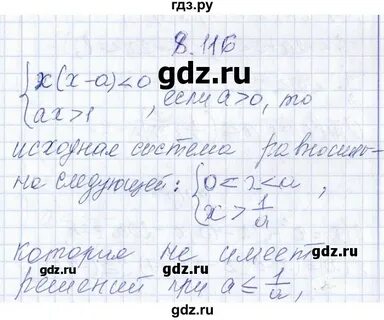 gdz.ru
8.116
{x(x-a)<0
{ax>1 , если a>0, то
исходная система равносиль-
на следующей: {0<x<a
{x>1/a ,
которая не имеет
решений при a≤1/a,
gdz.ru